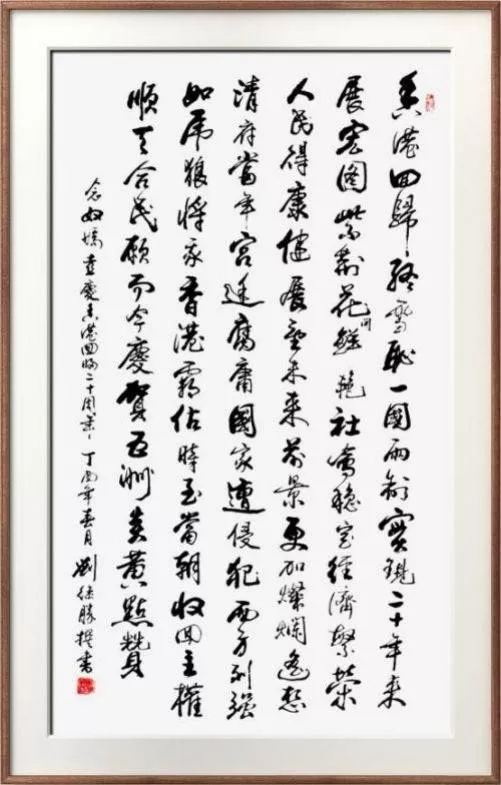 香港回歸終雪恥一國兩制實現二十年來
展宏圖紫荆花開鮮艷社會穩定經濟繁榮
人民得康健展望未來前景更加燦爛遙想
清府當年宮廷腐庸國家遭侵犯西方列强
如虎狼將我香港霸佔時至當朝收回主權
順天合民願而今慶賀五洲炎黃點贊
念奴嬌喜慶香港回歸二十周年丁酉年春月劉德勝撰書